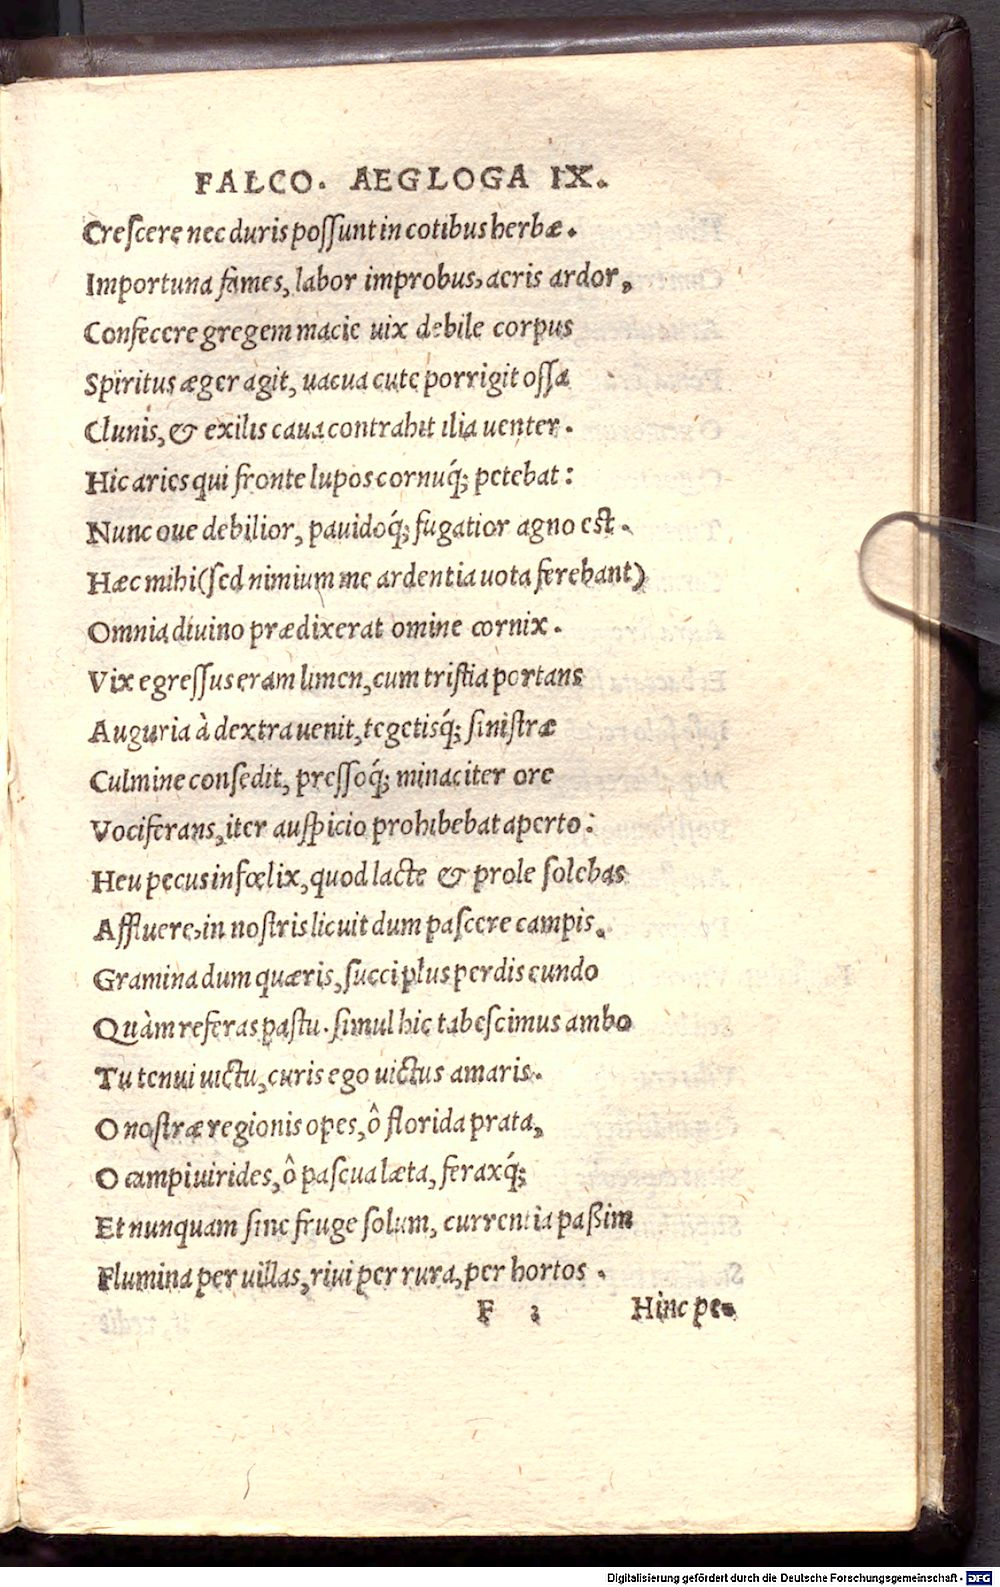 FALCO. AEGLOGA IX.
Crescere nec duris possunt in cotibus herbæ.
Importuna fames, labor improbus, aeris ardor,
Confecere gregem macie uix debile corpus
Spiritus æger agit, uacua cute porrigit ossa
Clunis, & exilis caua contrahit ilia uenter.
Hic aries qui fronte lupos cornuq́; petebat:
Nunc oue debilior, pauidoq́; fugatior agno est.
Hæc mihi (sed nimium me ardentia uota ferebant)
Omnia diuino prædixerat omine cornix.
Vix egressus eram limen, cum tristia portans
Auguria à dextra uenit, tegetisq́; sinistræ
Culmine consedit, pressoq́; minaciter ore
Vociferans, iter auspicio prohibebat aperto:
Heu pecus infœlix, quod lacte & prole solebas
Affluere, in nostris licuit dum pascere campis.
Gramina dum quæris, succi plus perdis eundo
Quàm referas pastu. simul hic tabescimus ambo
Tu tenui uictu, curis ego uictus amaris.
O nostræ regionis opes, ô florida prata,
O campi uirides, ô pascua læta, feraxq́;
Et nunquam sine fruge solum, currentia paßim
Flumina per uillas, riui per rura, per hortos.
F 3 Hinc pe-
Digitalisierung gefördert durch die Deutsche Forschungsgemeinschaft - DFG